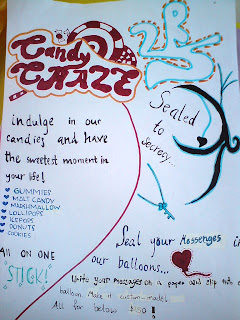 Candy
CRAZE
indulge in our
candies and have
the sweetest moment in
your life!
GUMMIES
MALT CANDY
MARSHMALLOW
LOLLIPOPS
ICEPOPS
DONUTS
COOKIES
All ON ONE
"STICK!"
Sealed
to
secrecy...
Seal your Messenges
our balloons...
Write your messages on a paper and slip
balloon. Make it custom-made!
All for below